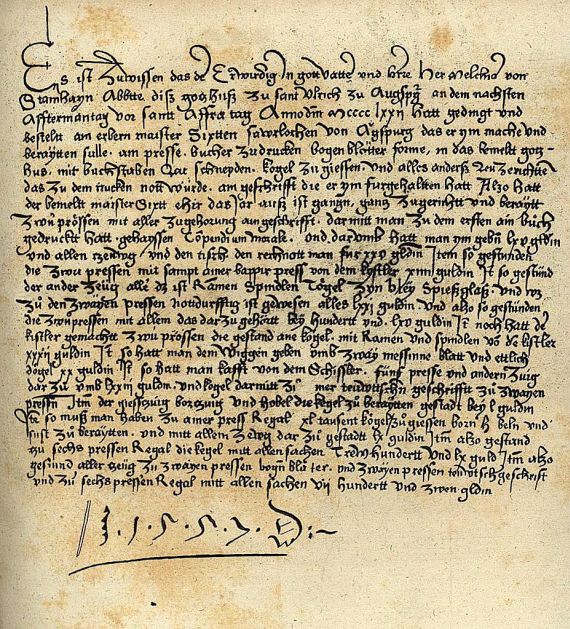 Es ist Zuwissen das der Erwirdig In gott vatter und herre Her Melchior von
Stamhayn Abbte diß gotzhuß Zu sant Ulrich Zu Augspurg an dem nachsten
Afftermäntag vor sant Affra tag Anno dm MCCCC lxxii Hatt gedingt und
bestelt am erbern maister Sixtten saurlochen von Augspurg das er ym mache und
beraytten sulle. am presse. bucher Zudrucken bogen bletter forme, in das bemelt gotz-
hus. mit buchstaben schneyden. kögel Zu giessen. und alles anders Zerichtten
das Zu dem trucken nott wurde. am geschrifft die er ym furgehaltten hatt Alzo hatt
der bemelt maister Sixtt eher das Jar auß ist gangn, ganz Zugericht und beraytt
Zwu pressen mit aller Zugehorung am geschrifft. dar mitt man Zu dem ersten ain buch
gedruckt hatt gehayssen Compendium morale. und darumb hatt man ym gebn lxv guldin
und allen rzewg. und den tisch. den rechnott man fur xxv guldin Item so gestunden
die Zwu pressen mit sampt ainer bappir press von dem kystler xiiii guldin It so gestund
der ander Zeug alle dz ist Ramen Spindlen Tögel Zyn bley Spießglaß und wz
Zu den Zwayen pressen notdurfftig ist gewesen alles lxxi guldin und alzo so gestunden
die Zwu pressen mit allem das dar Zu gehöret bey Hundertt und lxv guldin It noch hatt der
kistler gemachtt Zwu pressen. die gestand ane kögel. mit Ramen und spindlen von dem kistler
xxxii guldin It so hatt man dem Wiggen geben umb Zway messinne blatt und ettlich
dögel xx guldin It so hatt man kafft von dem Schissler. funf presse und andern Zug
dar Zu umb lxxii guldin. und kögel darmitt Zu mer teuwtschn geschrifft Zu Zwayen
pressen Itm der giesszuig borzuig und hobel die kögel Zu beraytten gestadt bey l guldin
It so muß man haben Zu ainer press Regal xl tausent kögel Zugiessen born hobeln und
sust Zu beraytten. und mitt allem Zewg dar Zu gestadt lx guldin Itm alzo gestand
Zu sechs pressen Regal die kegel mitt allen sachen Trew hundertt und lx guld Itm alzo
gestund aller Zeug Zu Zwayen pressen bogn bletter. und Zwayen pressen teuwtsch geschrifft
und Zu sechs pressen Regal mitt allen sachen vii hundertt und Zwen gldin
1.5.5.7.